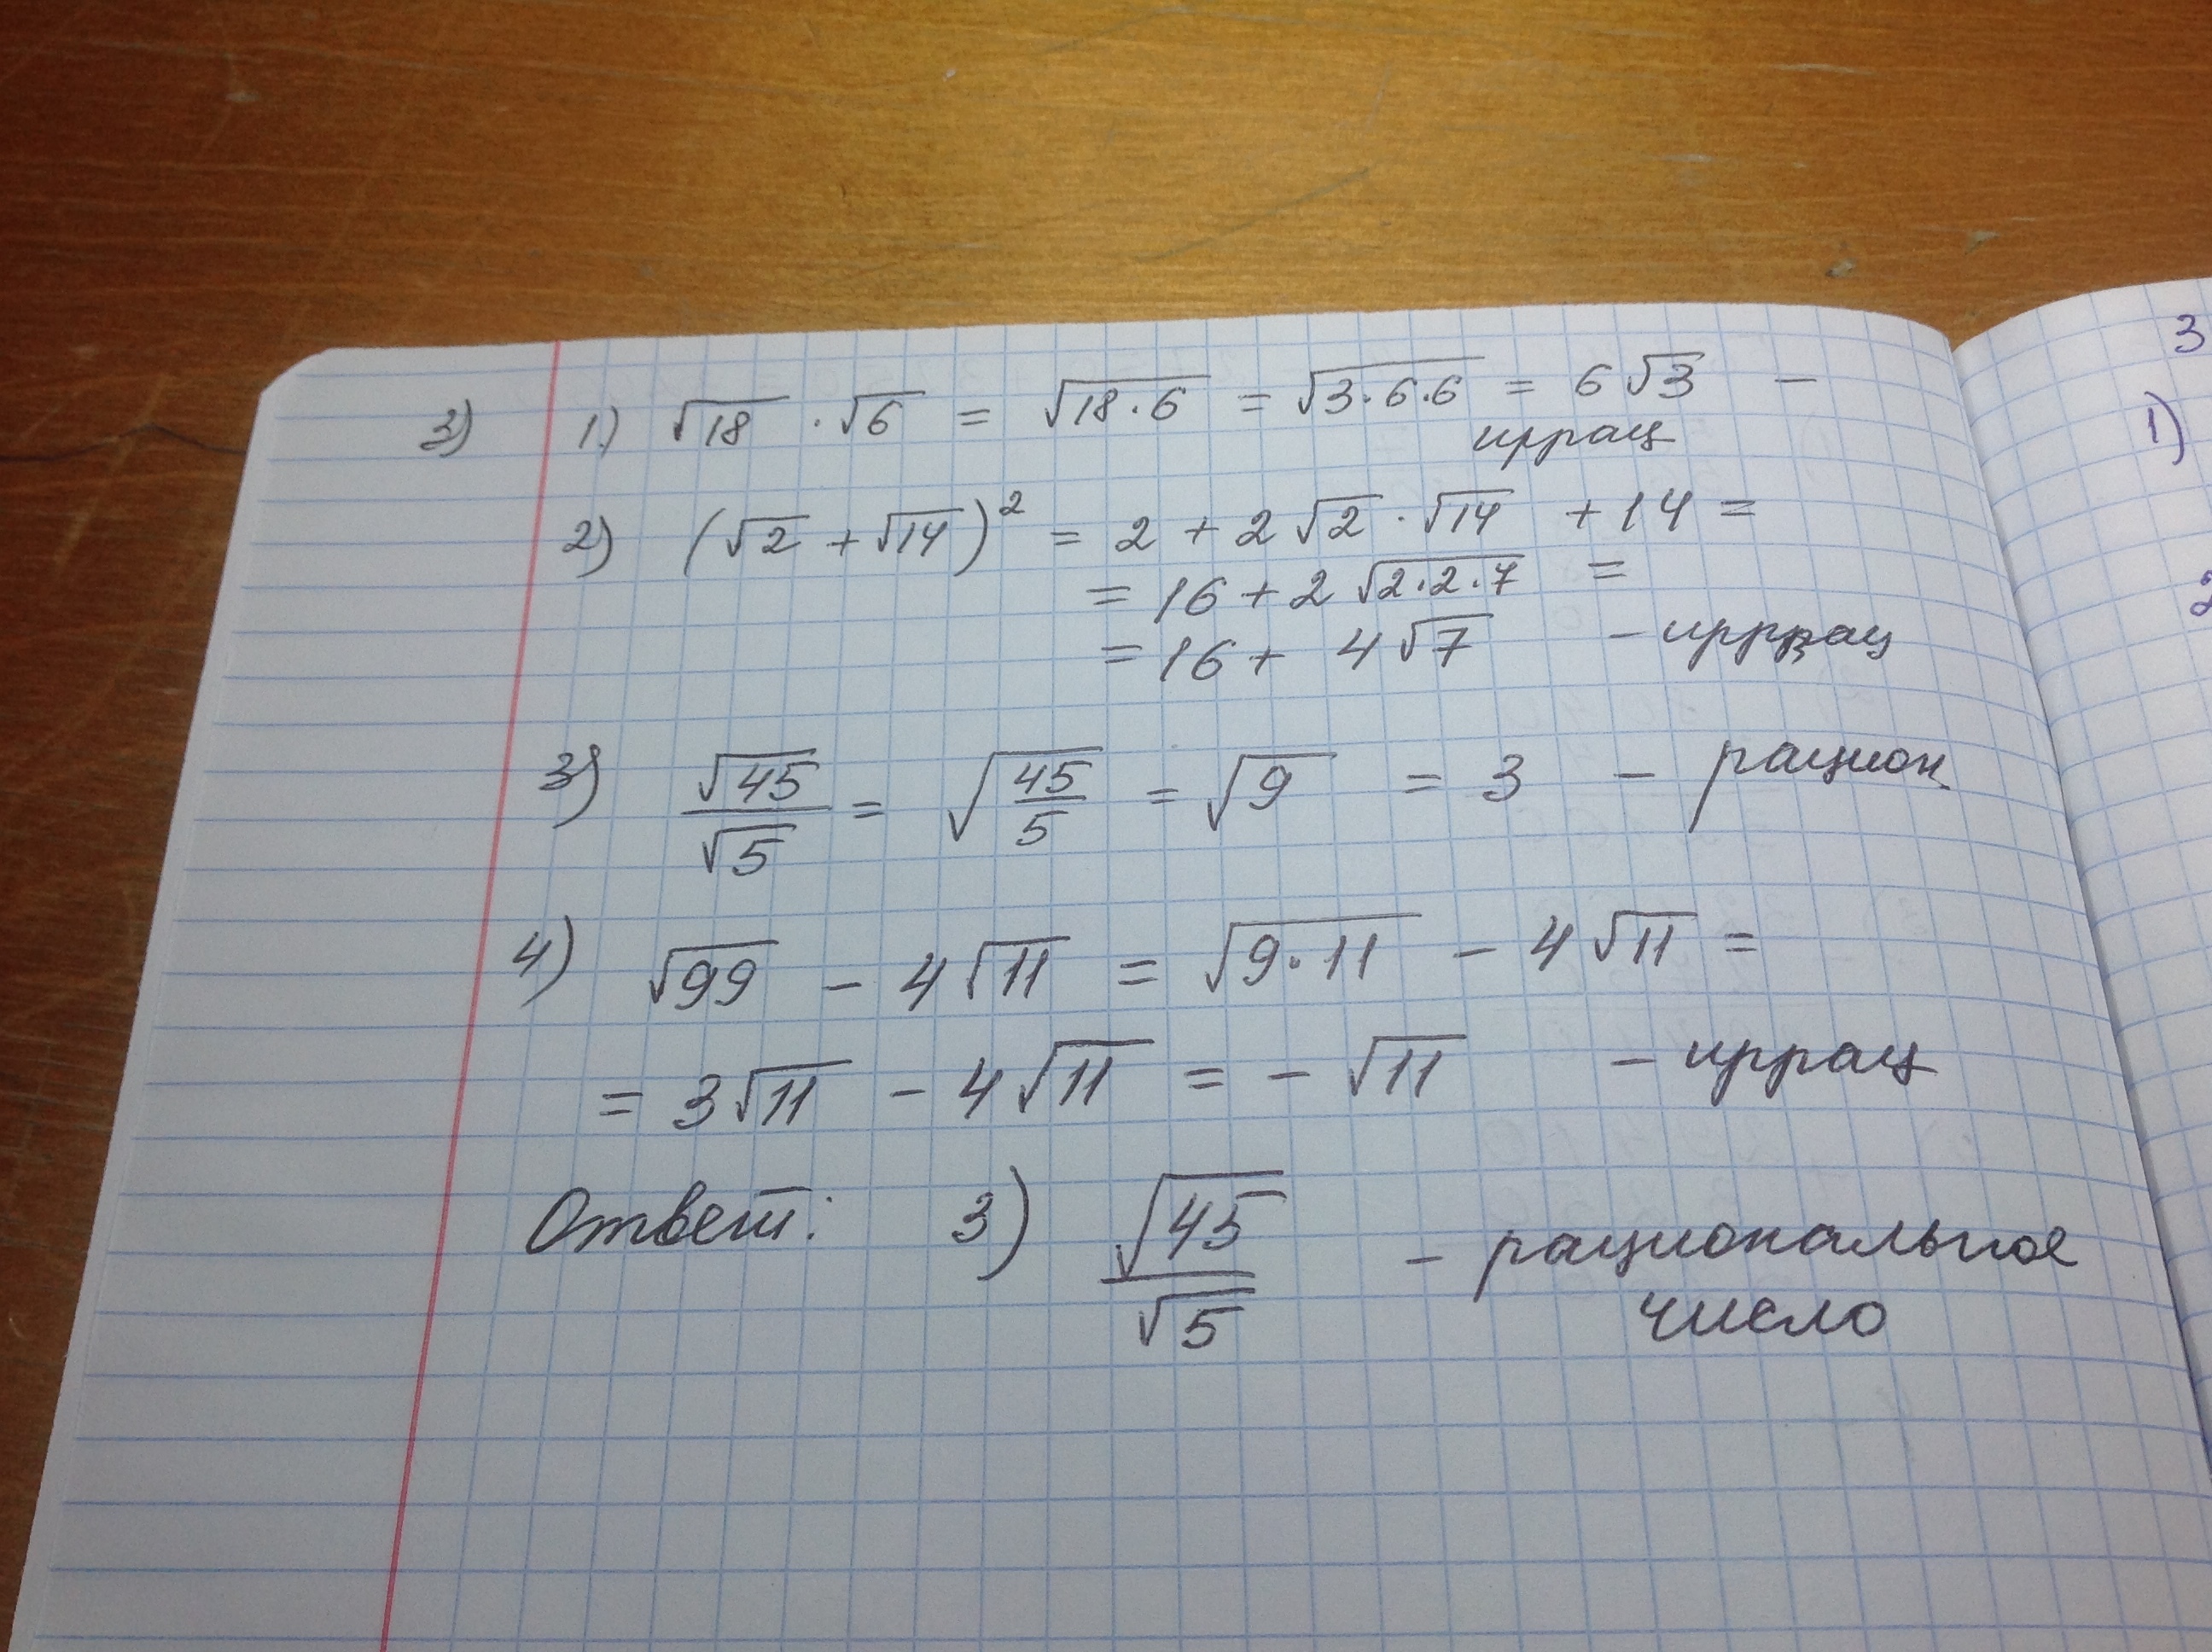 3) 1.) √18 · √6 = √18·6 = √3·6·6 = 6√3 –
иррац
2) (√2 + √14)² = 2 + 2√2 · √14 + 14 =
= 16 + 2√2·2·7 =
= 16 + 4√7 – иррац
3) √45/√5 = √45/5 = √9 = 3 – рацион
4) √99 – 4√11 = √9·11 – 4√11 =
= 3√11 – 4√11 = – √11 – иррац
Ответ: 3) √45/√5 – рациональное
число
3
1)
2